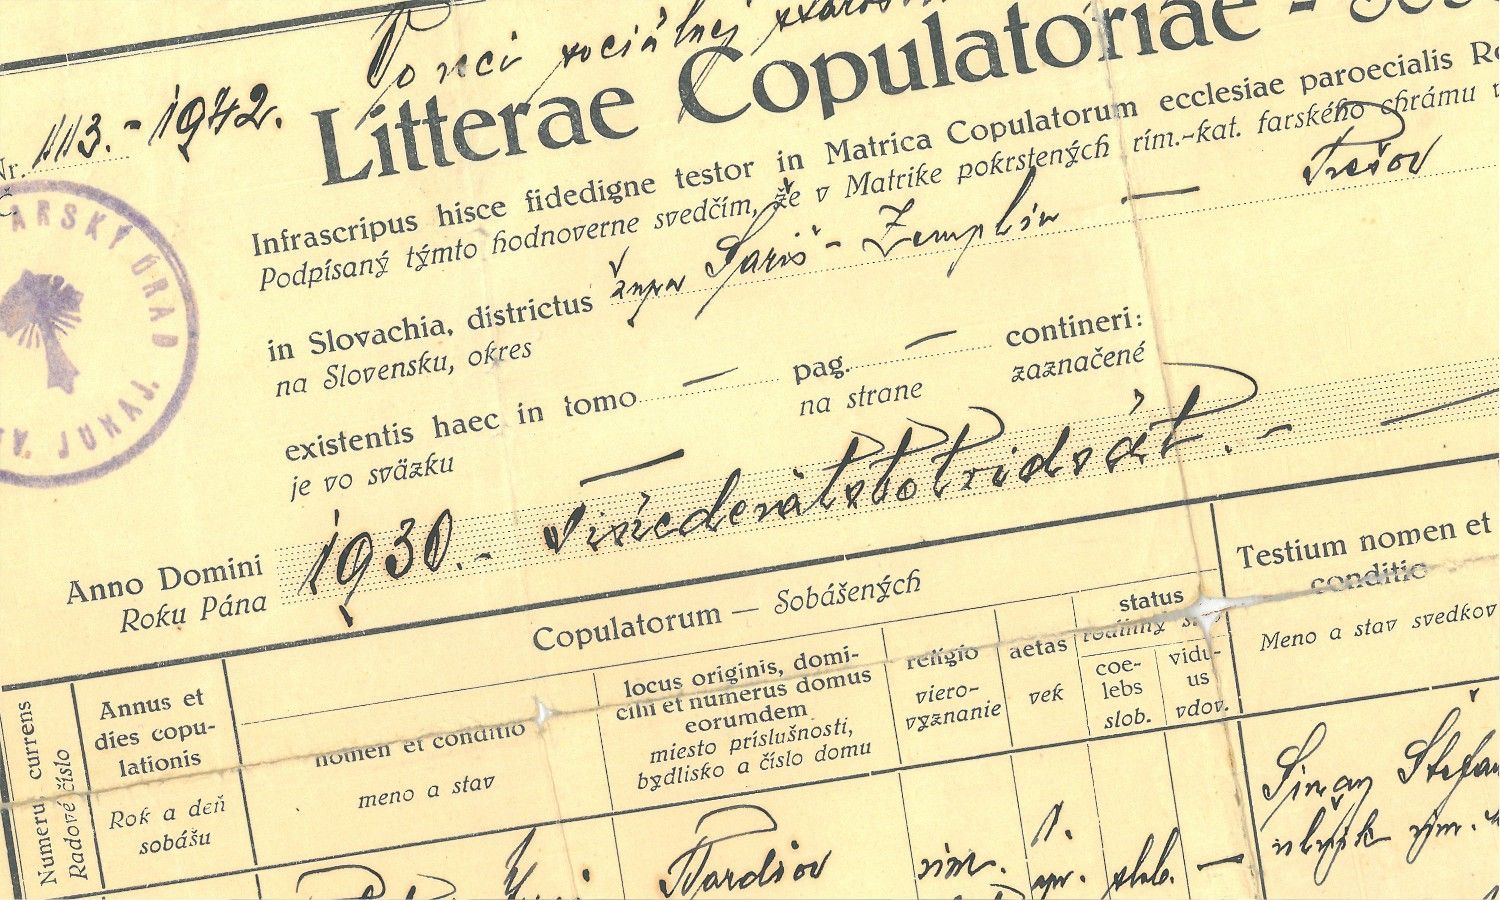 V veci sociálnej
Nr. 1113.-1942.
Litterae Copulatoriae -
Infrascripus hisce fidedigne testor in Matrica Copulatorum ecclesiae paroecialis
Podpísaný týmto hodnoverne svedčím, že v Matrike pokrstených rím.-kat. farského chrámu v
Prešov
in Slovachia, districtus župa Šariš - Zemplín —
na Slovensku, okres
existentis haec in tomo — pag. — contineri:
je vo sväzku na strane zaznačené
Anno Domini 1930.- Tisícdeväťstotridsať.-
Roku Pána
Copulatorum — Sobášených
Testium nomen et
conditio
Meno a stav svedkov
Numerus currens
Radové číslo
Annus et
dies copu-
lationis
Rok a deň
sobášu
nomen et conditio
meno a stav
locus originis, domi-
cilii et numerus domus
eorumdem
miesto príslušnosti,
bydlisko a číslo domu
religio
viero-
vyznanie
aetas
vek
status
rodinný
coe-
lebs
slob.
vidu-
us
vdov.
ARSKÝ ÚRAD
Bardiov
rím. slob. —
Štefan
rím.